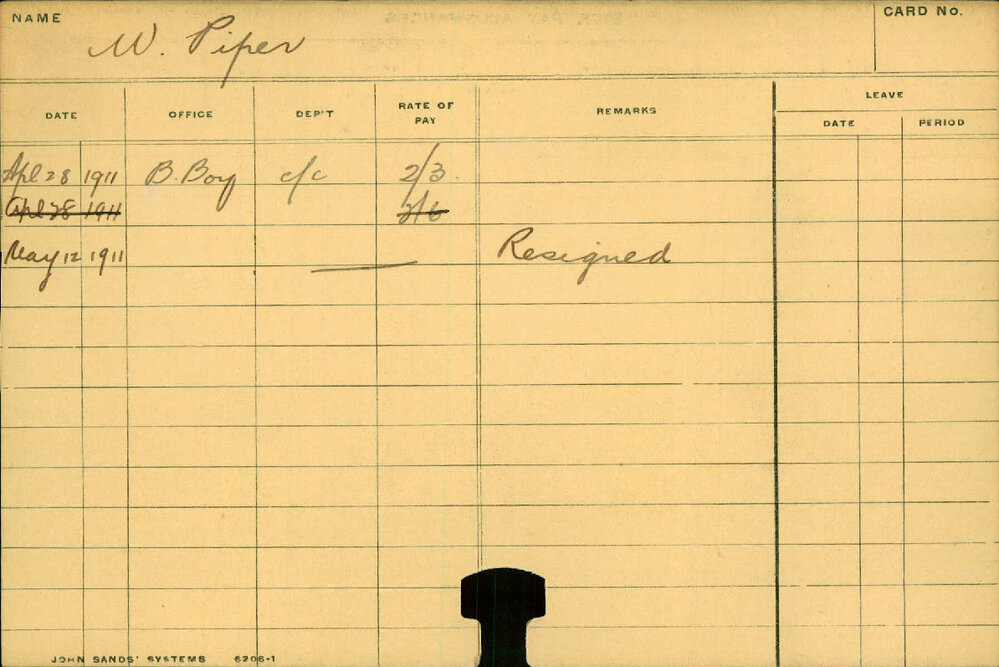 NAME W. Piper CARD No.
DATE OFFICE DEP'T RATE OF PAY REMARKS LEAVE
DATE PERIOD
Apl 28 1911 B. Boy c/c 2/3
Apl 28 1911 2/6
May 12 1911 Resigned
JOHN SANDS' SYSTEMS 6206-1